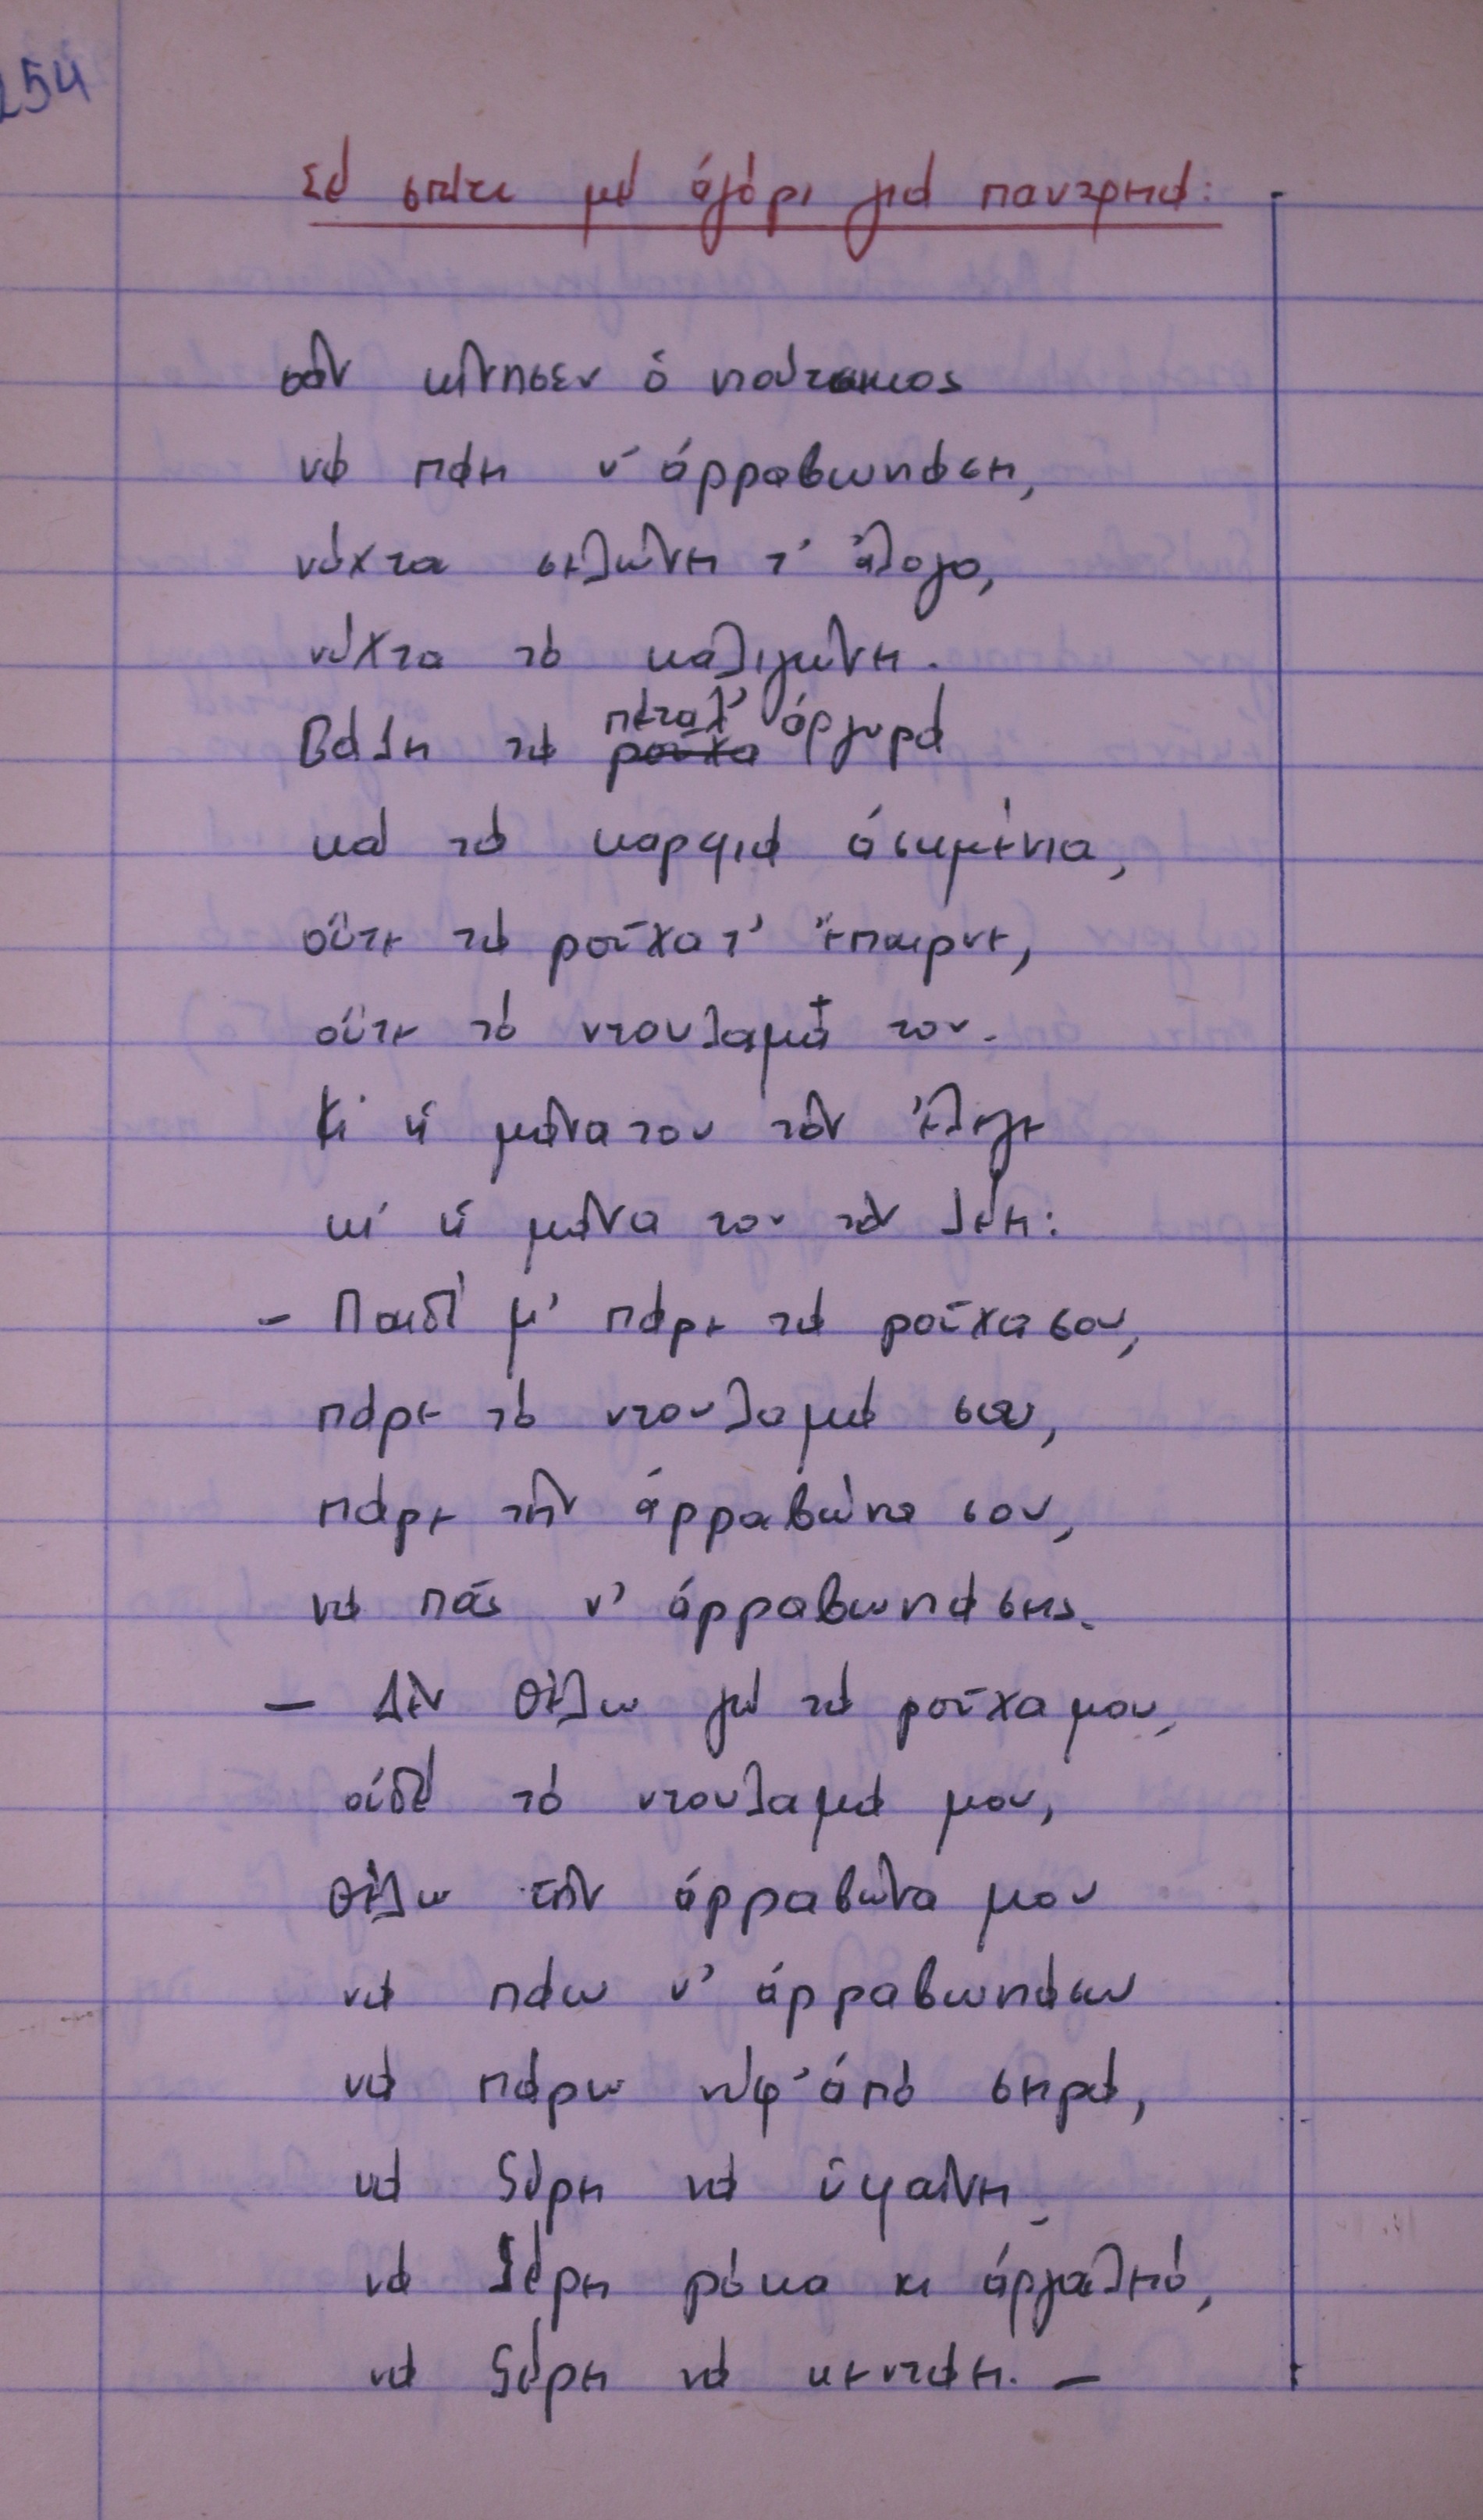 254
Σέ σπίτι μέ ἀγόρι γιά παντρειά:
σάν κίνησεν ὁ νιούτσικος
νά πάη ν' ἀρραβωνιάση,
νύχτα σελώνει τ' ἄλογο,
νύχτα τό καλιγώνει.
Βάλει τά πέταλ' ἀργυρά
καί τά καρφιά ἀσημένια,
οὔτε τά ροῦχα τ' ἔπαιρνε,
οὔτε τό ντουλαμᾶ + του.
Κι ἡ μάνα του τόν ἔλεγε
κι' ἡ μάνα του τόν λέει:
- Παιδί μ' πάρε τά ροῦχα σου,
πάρε τό ντουλαμά σου,
πάρε τήν ἀρραβώνα σου,
νά πᾶς ν' ἀρραβωνιάσης.
- Δέν θέλω γώ τά ροῦχα μου,
οὐδέ τό ντουλαμά μου,
θέλω τήν ἀρραβώνα μου
νά πάω ν' ἀρραβωνιάσω
νά πάρω νύφ' ἀπό σειρά,
νά ξέρη νά ὑφαίνη,
νά ξέρη ρόκα κι ἀργαλειό,
νά ξέρη νά κεντάη. -